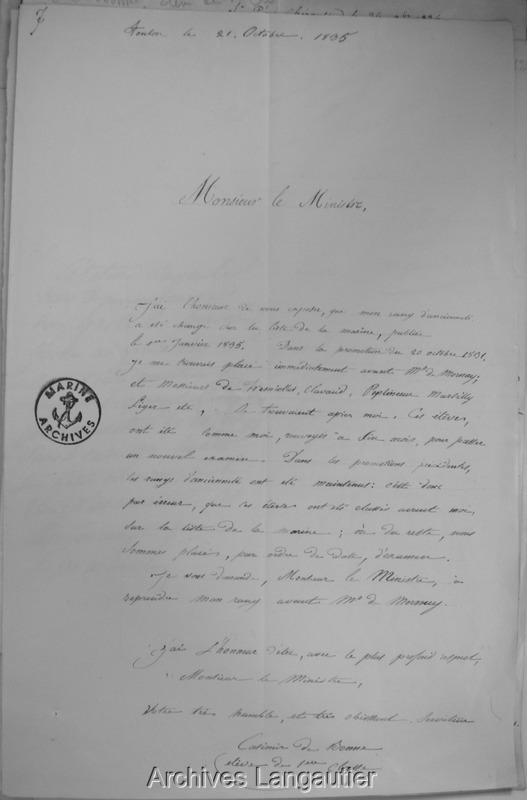 Toulon le 21. Octobre. 1835
Monsieur le Ministre,
J'ai l'honneur de vous exposer, que mon rang d'ancienneté
a été changé sur la liste de la marine, publiée
le 1er Janvier 1835. Dans la promotion du 20 octobre 1831,
je me trouvais placé immédiatement avant Mr de Mornay;
et Messieurs de Clavaud, Marsilly
Léger etc, se trouvaient après moi. Ces élèves,
ont été comme moi, renvoyés à six mois, pour passer
un nouvel examen. Dans les promotions précédentes,
les rangs d'ancienneté ont été maintenus: c'est donc
par erreur, que ces élèves ont été classés avant moi
sur la liste de la marine; où du reste, nous
sommes placés, par ordre de date, d'examen.
Je vous demande, Monsieur le Ministre, à
reprendre mon rang avant Mr de Mornay.
J'ai l'honneur d'être, avec le plus profond respect,
Monsieur le Ministre,
Votre très humble, et très obéissant Serviteur
Casimir de Bonne
élève de 1ere Classe
MARINE
ARCHIVES
Archives Langautier